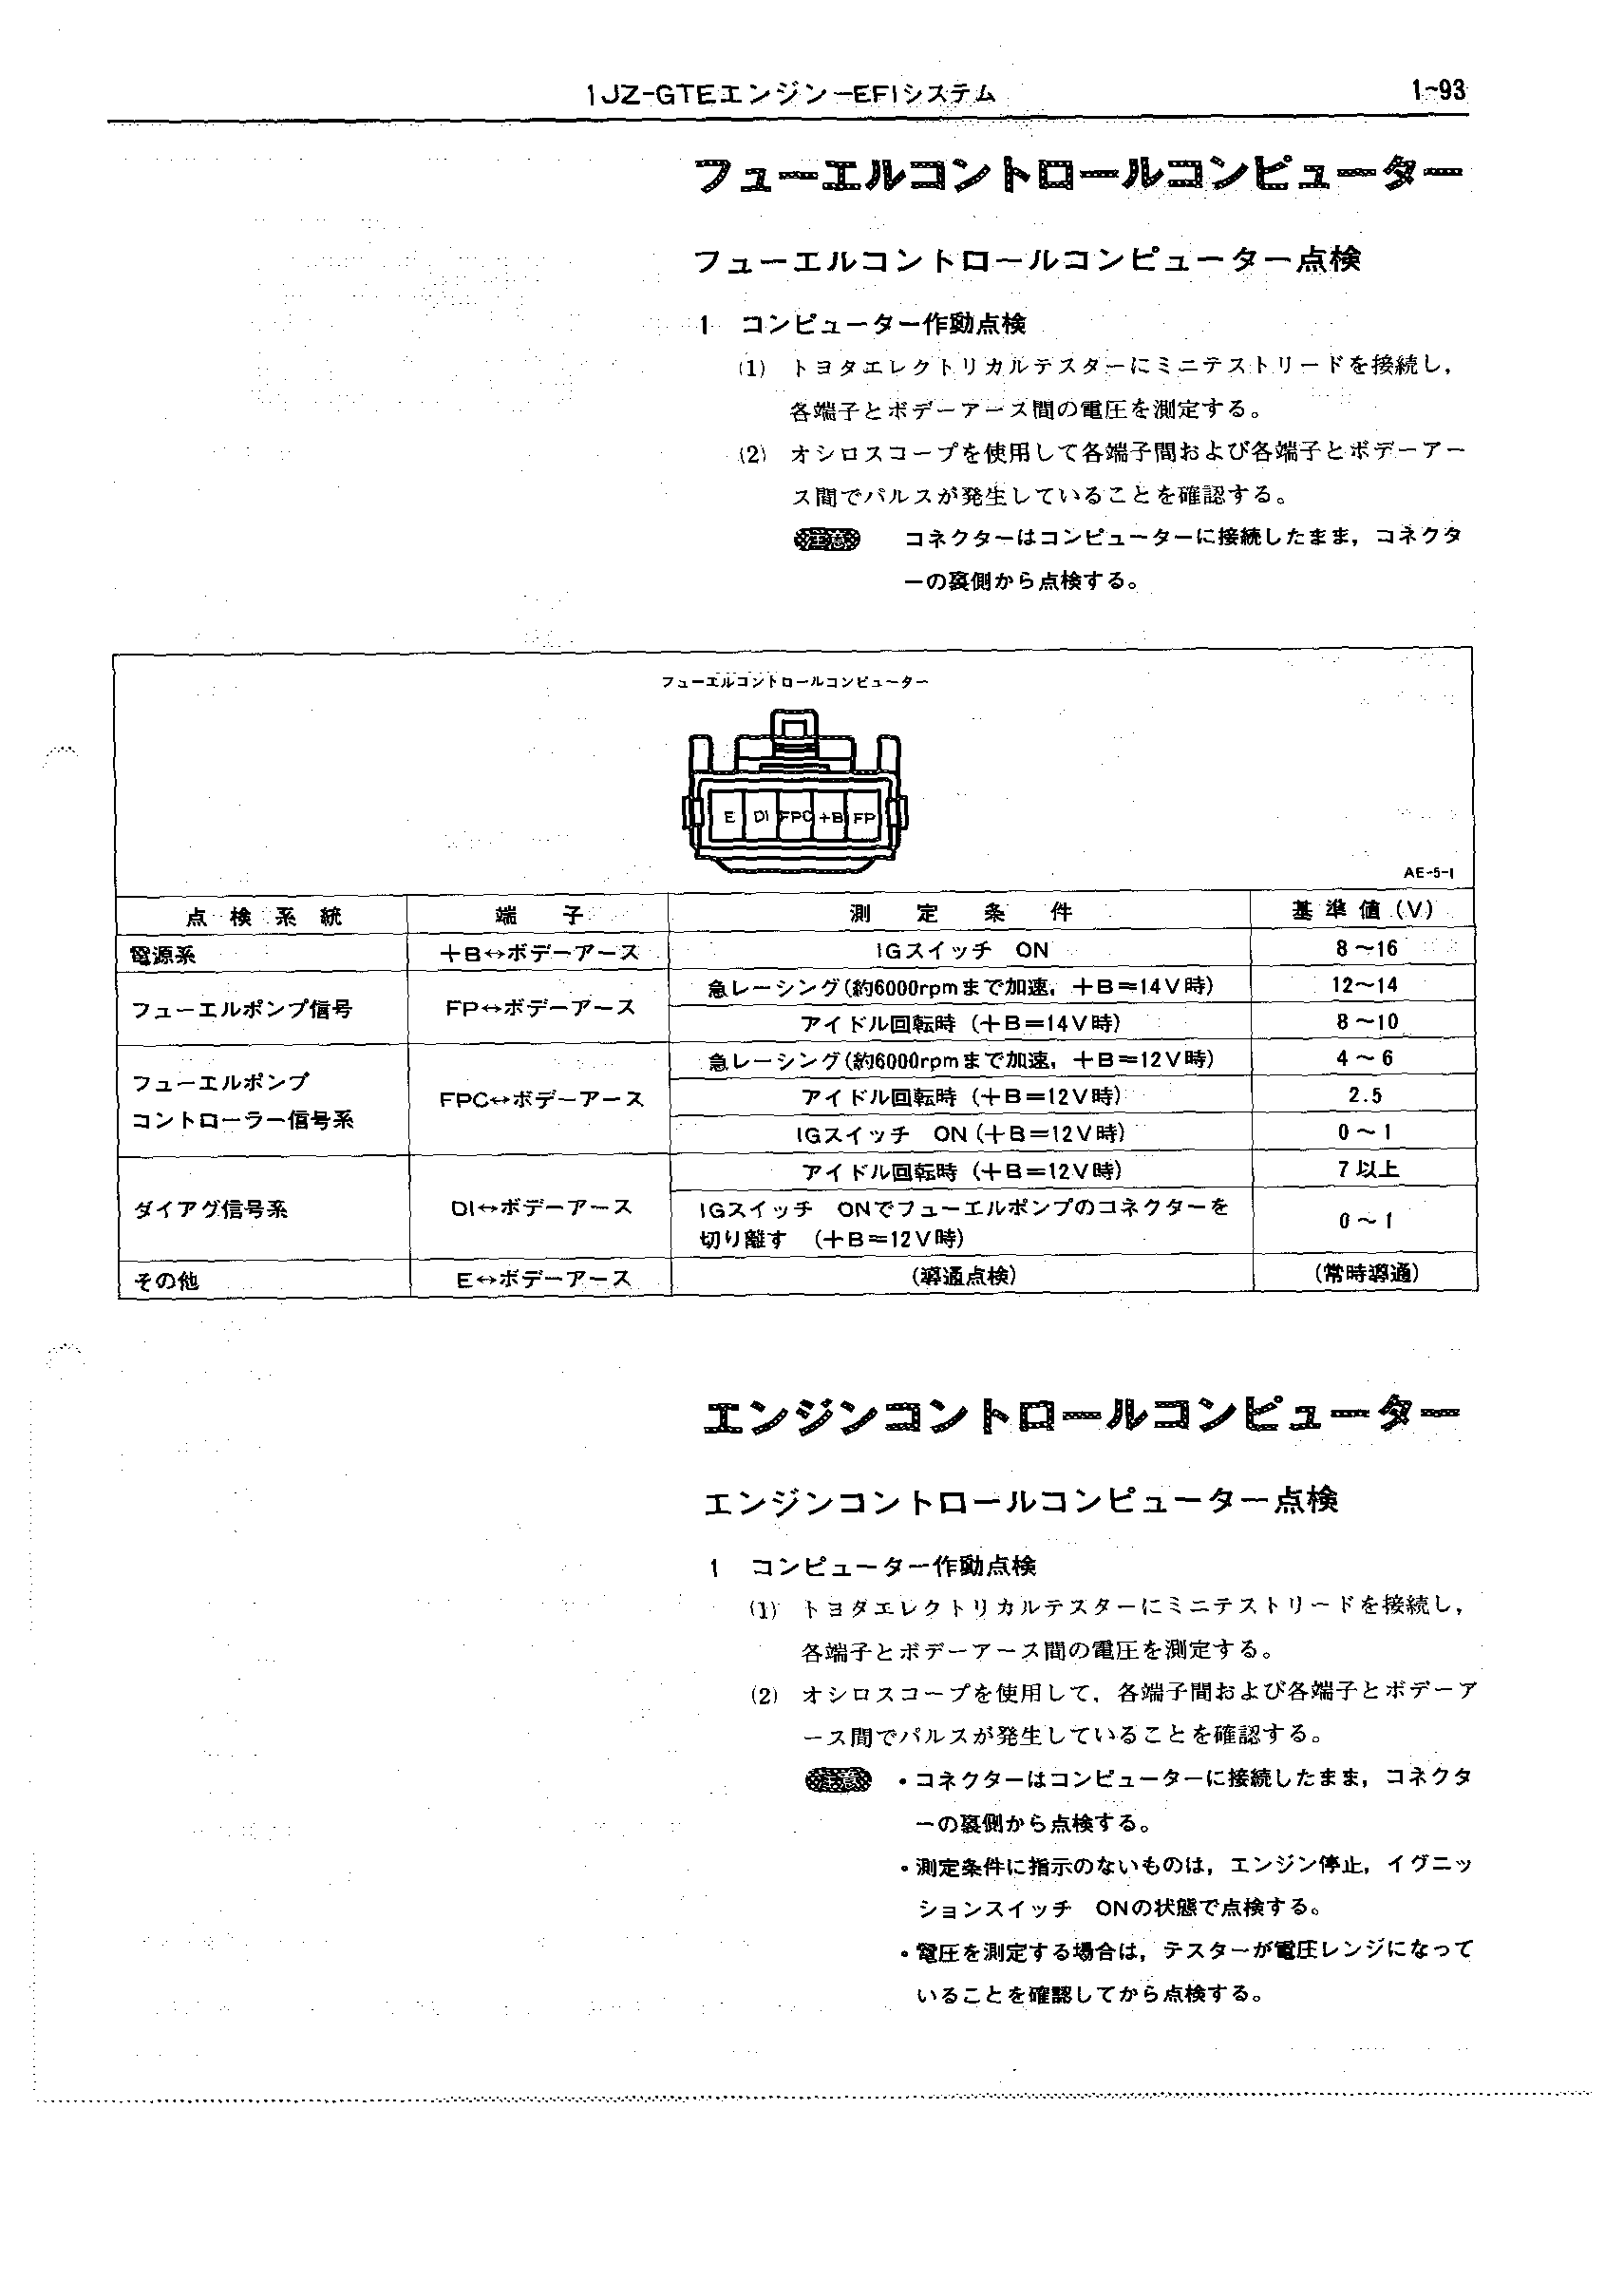 1JZ-GTEエンジン−EFIシステム
1-93
フューエルコントロールコンピューター
フューエルコントロールコンピューター点検
1 コンピューター作動点検
(1) トヨタエレクトリカルテスターにミニテストリードを接続し,
各端子とボデーアース間の電圧を測定する。
(2) オシロスコープを使用して各端子間および各端子とボデーアー
ス間でパルスが発生していることを確認する。
注意 コネクターはコンピューターに接続したまま,コネクタ
ーの裏側から点検する。
フューエルコントロールコンピューター
E DI FPC +B FP
AE-5-1
点検系統 端子 測定条件 基準値(V)
電源系 +B↔ボデーアース IGスイッチ ON 8〜16
フューエルポンプ信号 FP↔ボデーアース 急レーシング(約6000rpmまで加速,+B=14V時) 12〜14
アイドル回転時(+B=14V時) 8〜10
フューエルポンプ
コントローラー信号系 FPC↔ボデーアース 急レーシング(約6000rpmまで加速,+B=12V時) 4〜6
アイドル回転時(+B=12V時) 2.5
IGスイッチ ON(+B=12V時) 0〜1
ダイアグ信号系 DI↔ボデーアース アイドル回転時(+B=12V時) 7以上
IGスイッチ ONでフューエルポンプのコネクターを
切り離す (+B=12V時) 0〜1
その他 E↔ボデーアース (導通点検) (常時導通)
エンジンコントロールコンピューター
エンジンコントロールコンピューター点検
1 コンピューター作動点検
(1) トヨタエレクトリカルテスターにミニテストリードを接続し,
各端子とボデーアース間の電圧を測定する。
(2) オシロスコープを使用して,各端子間および各端子とボデーア
ース間でパルスが発生していることを確認する。
注意 ・コネクターはコンピューターに接続したまま,コネクタ
ーの裏側から点検する。
・測定条件に指示のないものは,エンジン停止,イグニッ
ションスイッチ ONの状態で点検する。
・電圧を測定する場合は,テスターが電圧レンジになって
いることを確認してから点検する。